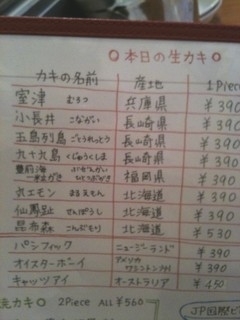 本日の生カキ
カキの名前 産地 1 Piece
室津 むろつ 兵庫県 ¥390
小長井 こながい 長崎県 ¥390
五島列島 ごとうれっとう 長崎県 ¥390
九十九島 くじゅうくしま 長崎県 ¥390
豊前海 ぶぜんかい 福岡県 ¥390
一粒かき ひとつぶかき
丸エモン まるえもん 北海道 ¥390
仙鳳趾 せんぽうし 北海道 ¥390
昆布森 こんぶもり 北海道 ¥530
パシフィック ニュージーランド ¥390
オイスターボーイ アメリカ ワシントン州 ¥390
キャッツアイ オーストラリア ¥450
焼カキ 2Piece ALL ¥560
JP回報ビ